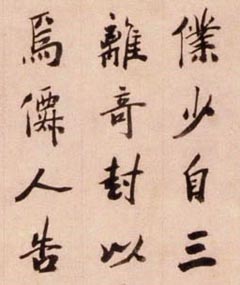 僕少自三
離奇封以
焉人告